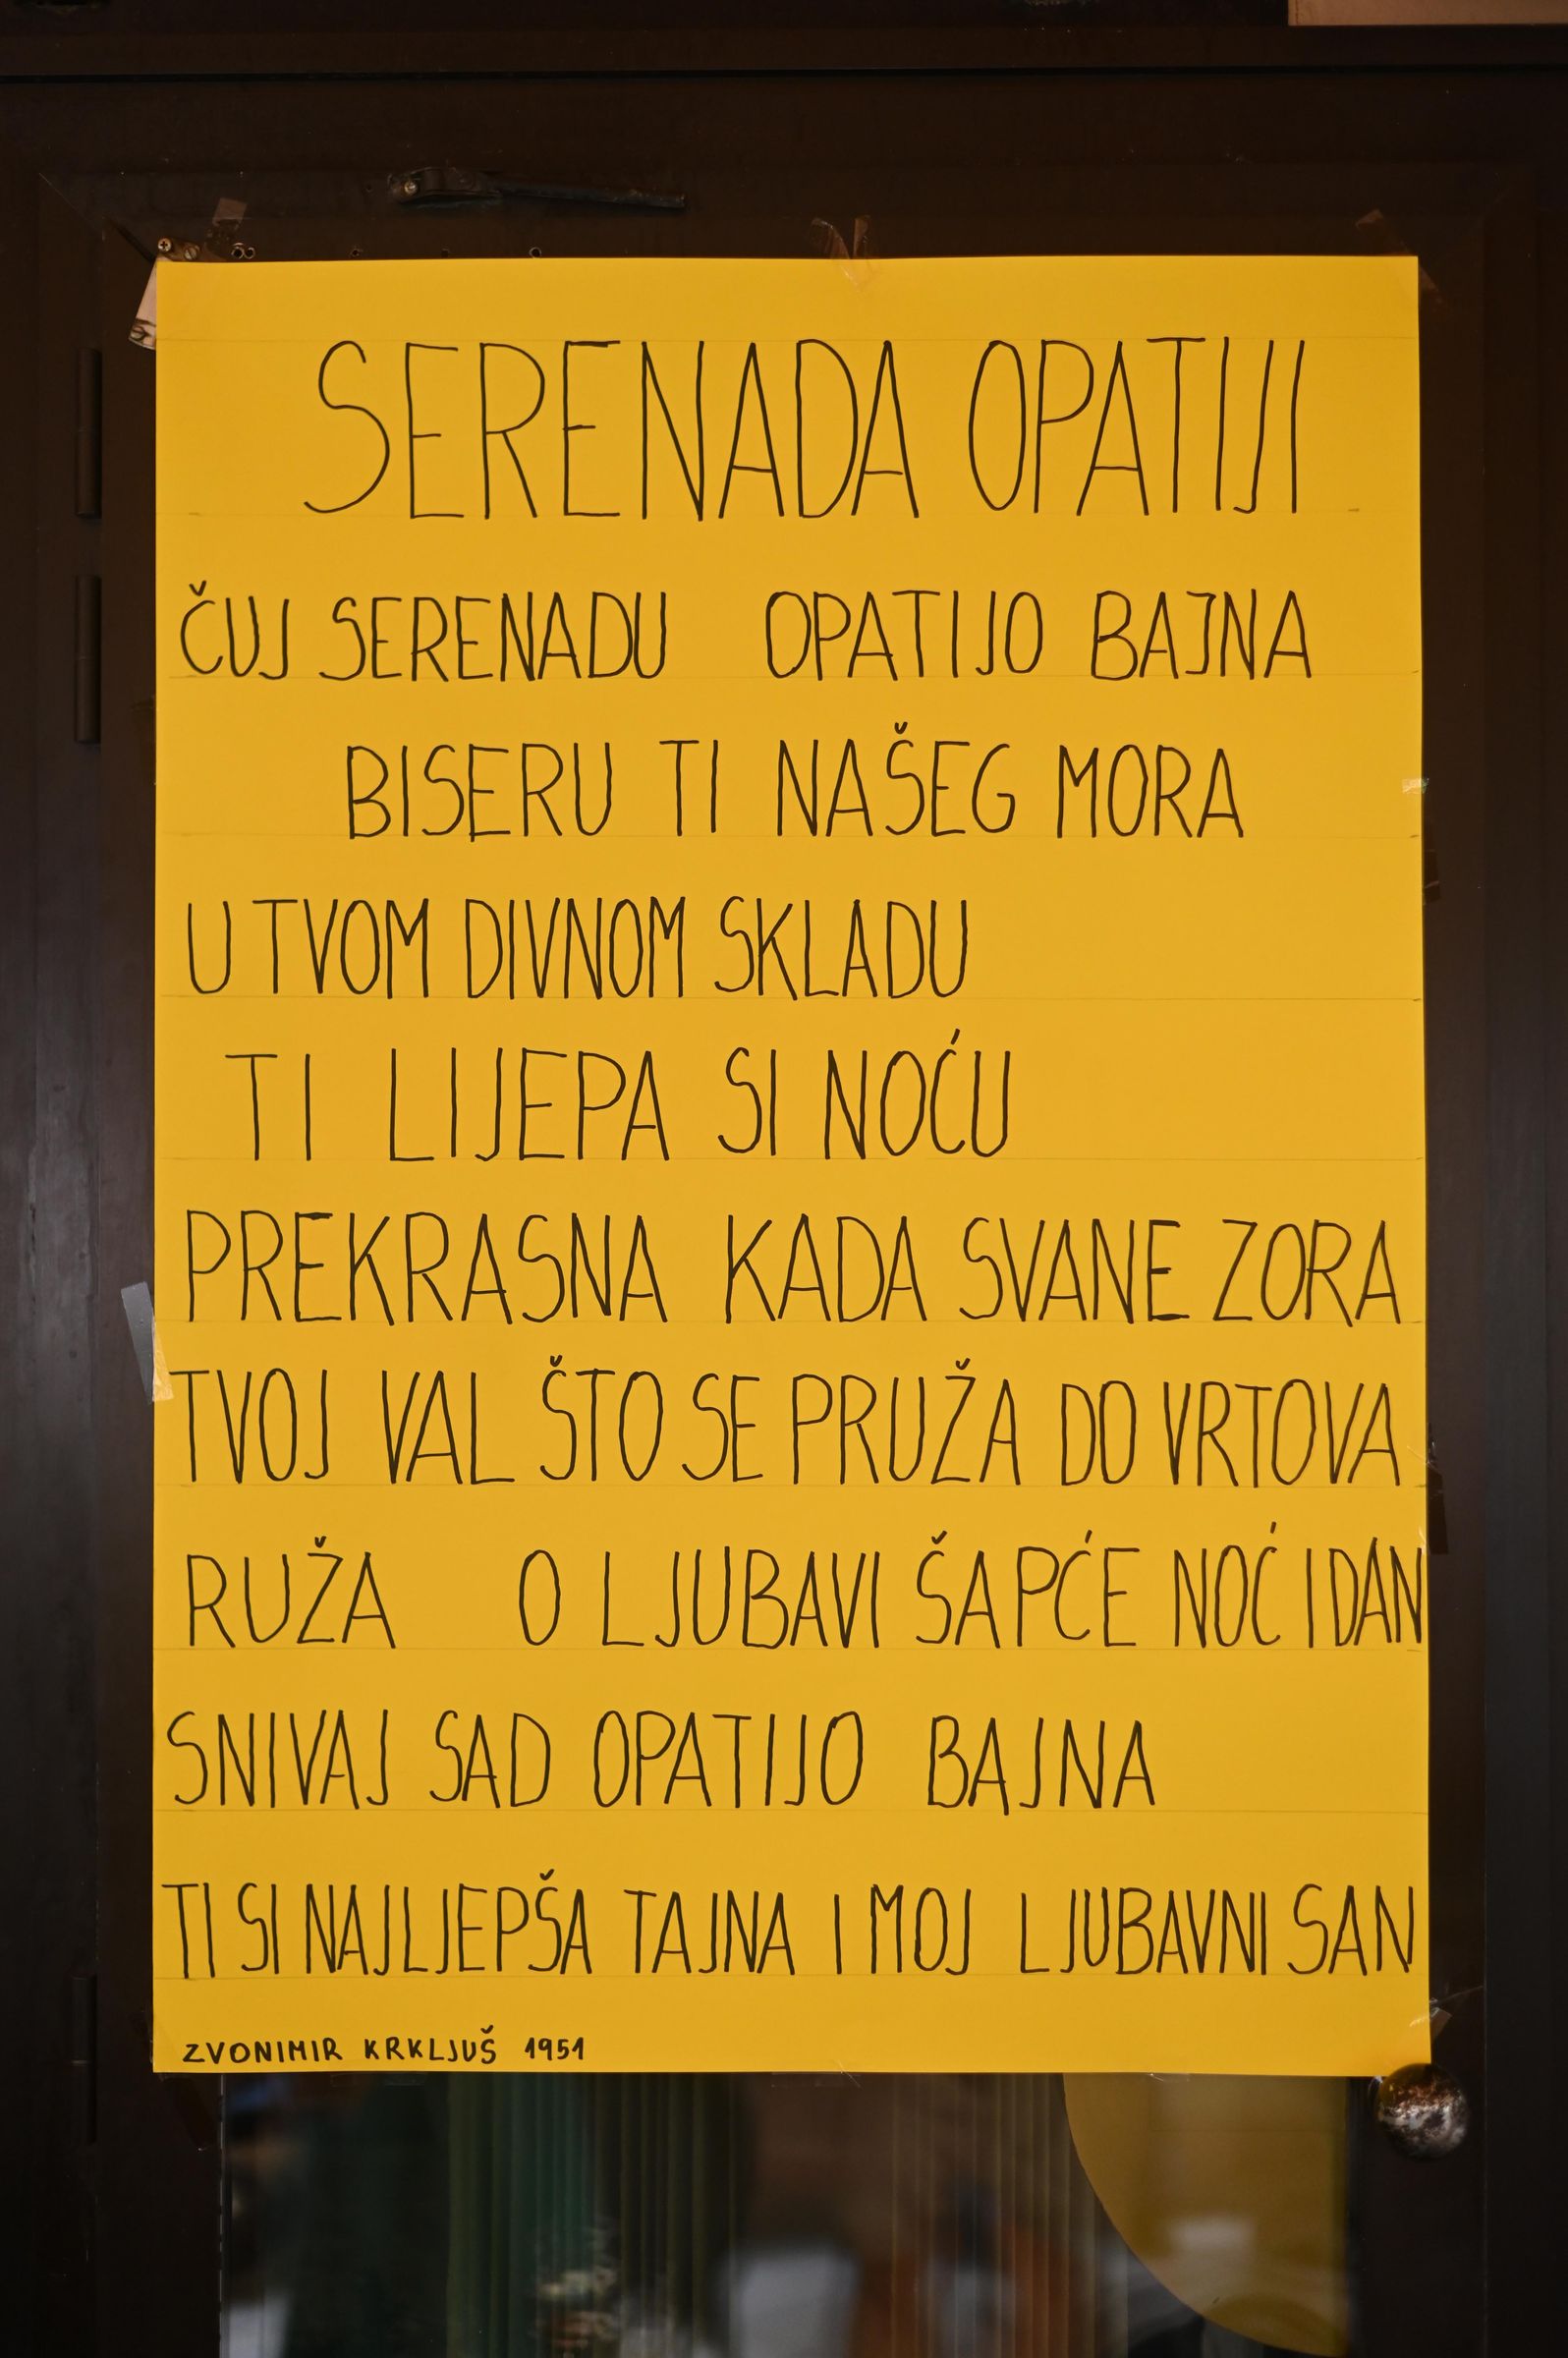 SERENADA OPATIJI
ČUJ SERENADU OPATIJO BAJNA
BISERU TI NAŠEG MORA
U TVOM DIVNOM SKLADU
TI LIJEPA SI NOĆU
PREKRASNA KADA SVANE ZORA
TVOJ VAL ŠTO SE PRUŽA DO VRTOVA
RUŽA O LJUBAVI ŠAPĆE NOĆ I DAN
SNIVAJ SAD OPATIJO BAJNA
TI SI NAJLJEPŠA TAJNA I MOJ LJUBAVNI SAN
ZVONIMIR KRKLJUŠ 1951